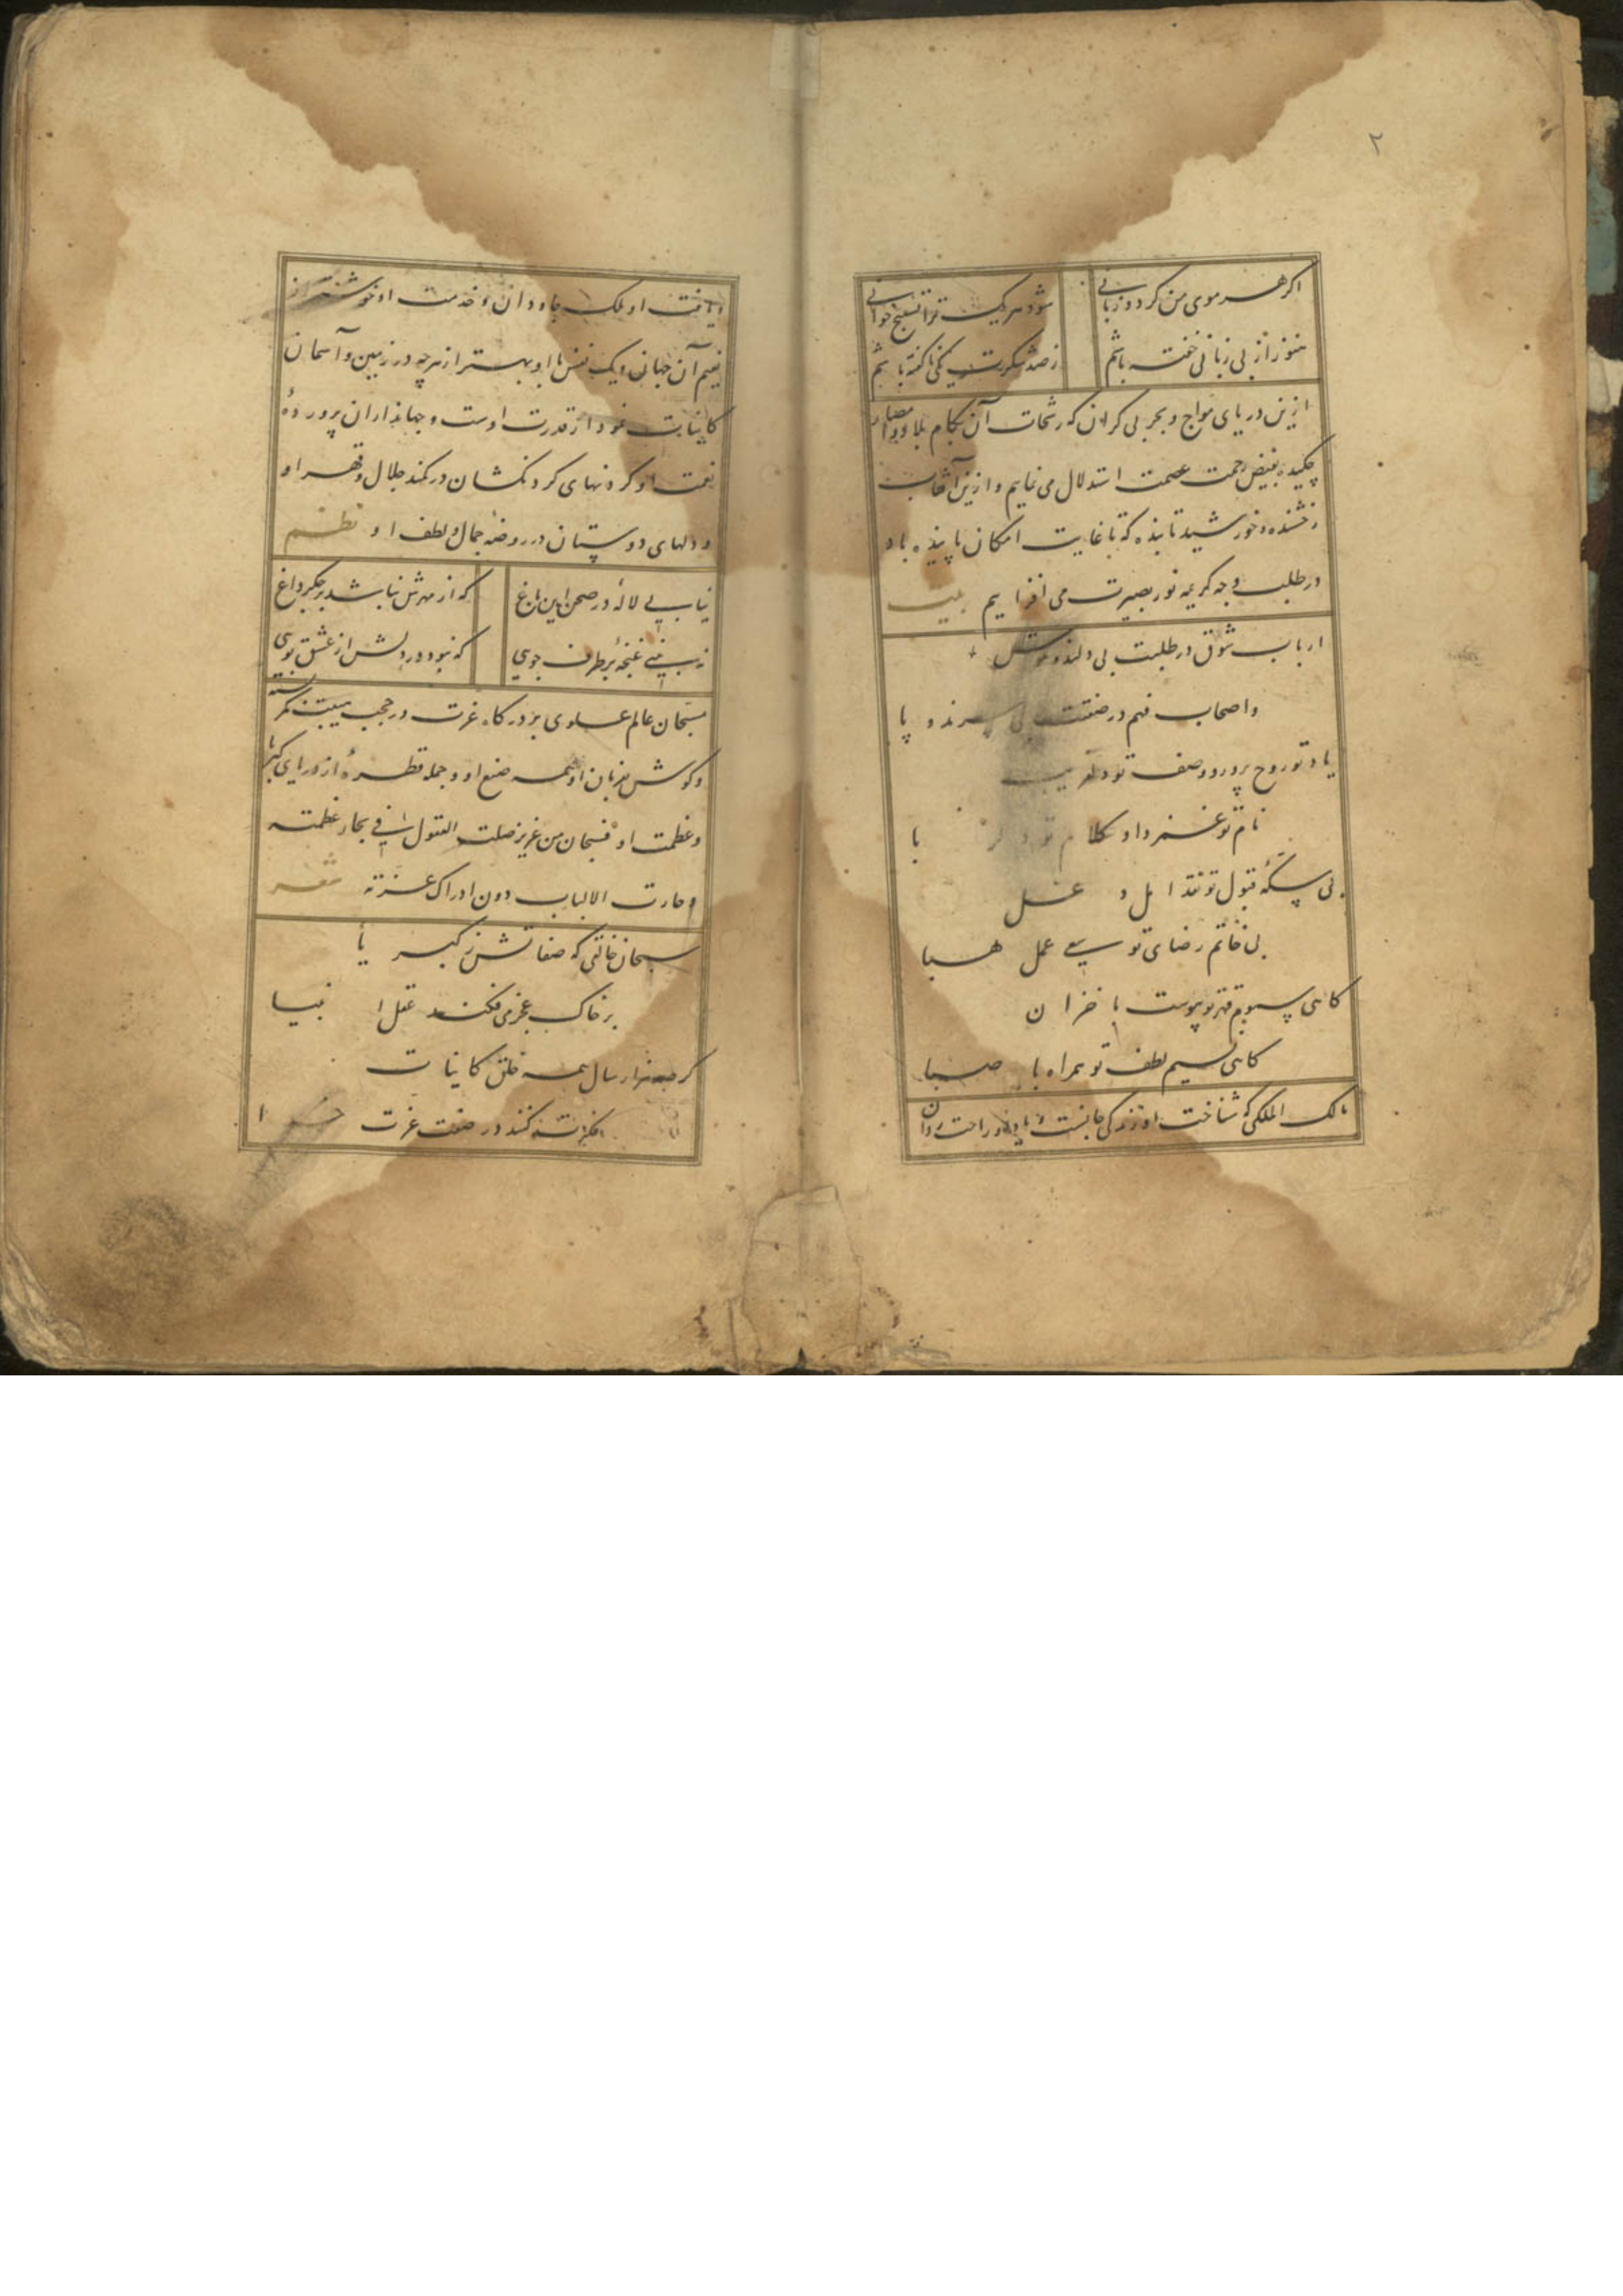 ۲
اگر هر موی من گردد زبانی شود هر یک ترا تسبیح خوانی
هنوز از بی زبانی خفته باشم ز صد شکرت یکی ناگفته باشم
ازین دریای مواج و بحر بی کران که رشحات آن بکام بلاد و امصار
چکیده بفیض رحمت عصمت استدلال می نمایم و ازین آفتاب
رخشنده و خورشید تابنده که تا غایت امکان پاینده باد
در طلب وجه کریمه نور بصیرت می افزایم بیت
ارباب شوق در طلبت بی دلند و
و اصحاب فهم در صفتت بی سرند و پا
یاد تو روح پرور و وصف تو دلفریب
نام تو غمزدا و کلام تو با
بی سکهٔ قبول تو نقد امل دغل
بی خاتم رضای تو سعی عمل هبا
گاهی سموم قهر تو پیوست با خزان
گاهی نسیم لطف تو همراه با صبا
مالک الملکی که شناخت او زندگی جانست و یاد او راحت روان
و یافت او ملک جاودان و خدمت او خوشتر از
نعیم آن جهان و یک نفس با او بهتر از هرچه در زمین و آسمان
کاینات نمودار قدرت اوست و جهانداران پروردهٔ
نعمت او گردنهای گردنکشان در کمند جلال و قهر او
و دلهای دوستان در روضه جمال و لطف او نظم
نیابی لالهٔ در صحن این باغ که از مهرش نباشد بر جگر داغ
نه بینی غنچهٔ بر طرف جوی که نبود در دلش از عشق توی
مسبحان عالم علوی بر درگاه عزت در حجب هیبت کمر بسته
و گوش همه صنع او و جمله قطرهٔ از دریای کبریا
و عظمت او فسبحان من عزیز ضلت العقول فی بحار عظمته
و حارت الالباب دون ادراک عزته شعر
سبحان خالقی که صفاتش ز کبریا
بر خاک عجز می فکند عقل انبیا
گر صد هزار سال همه خلق کاینات
فکرت کنند در صفت عزت خدا